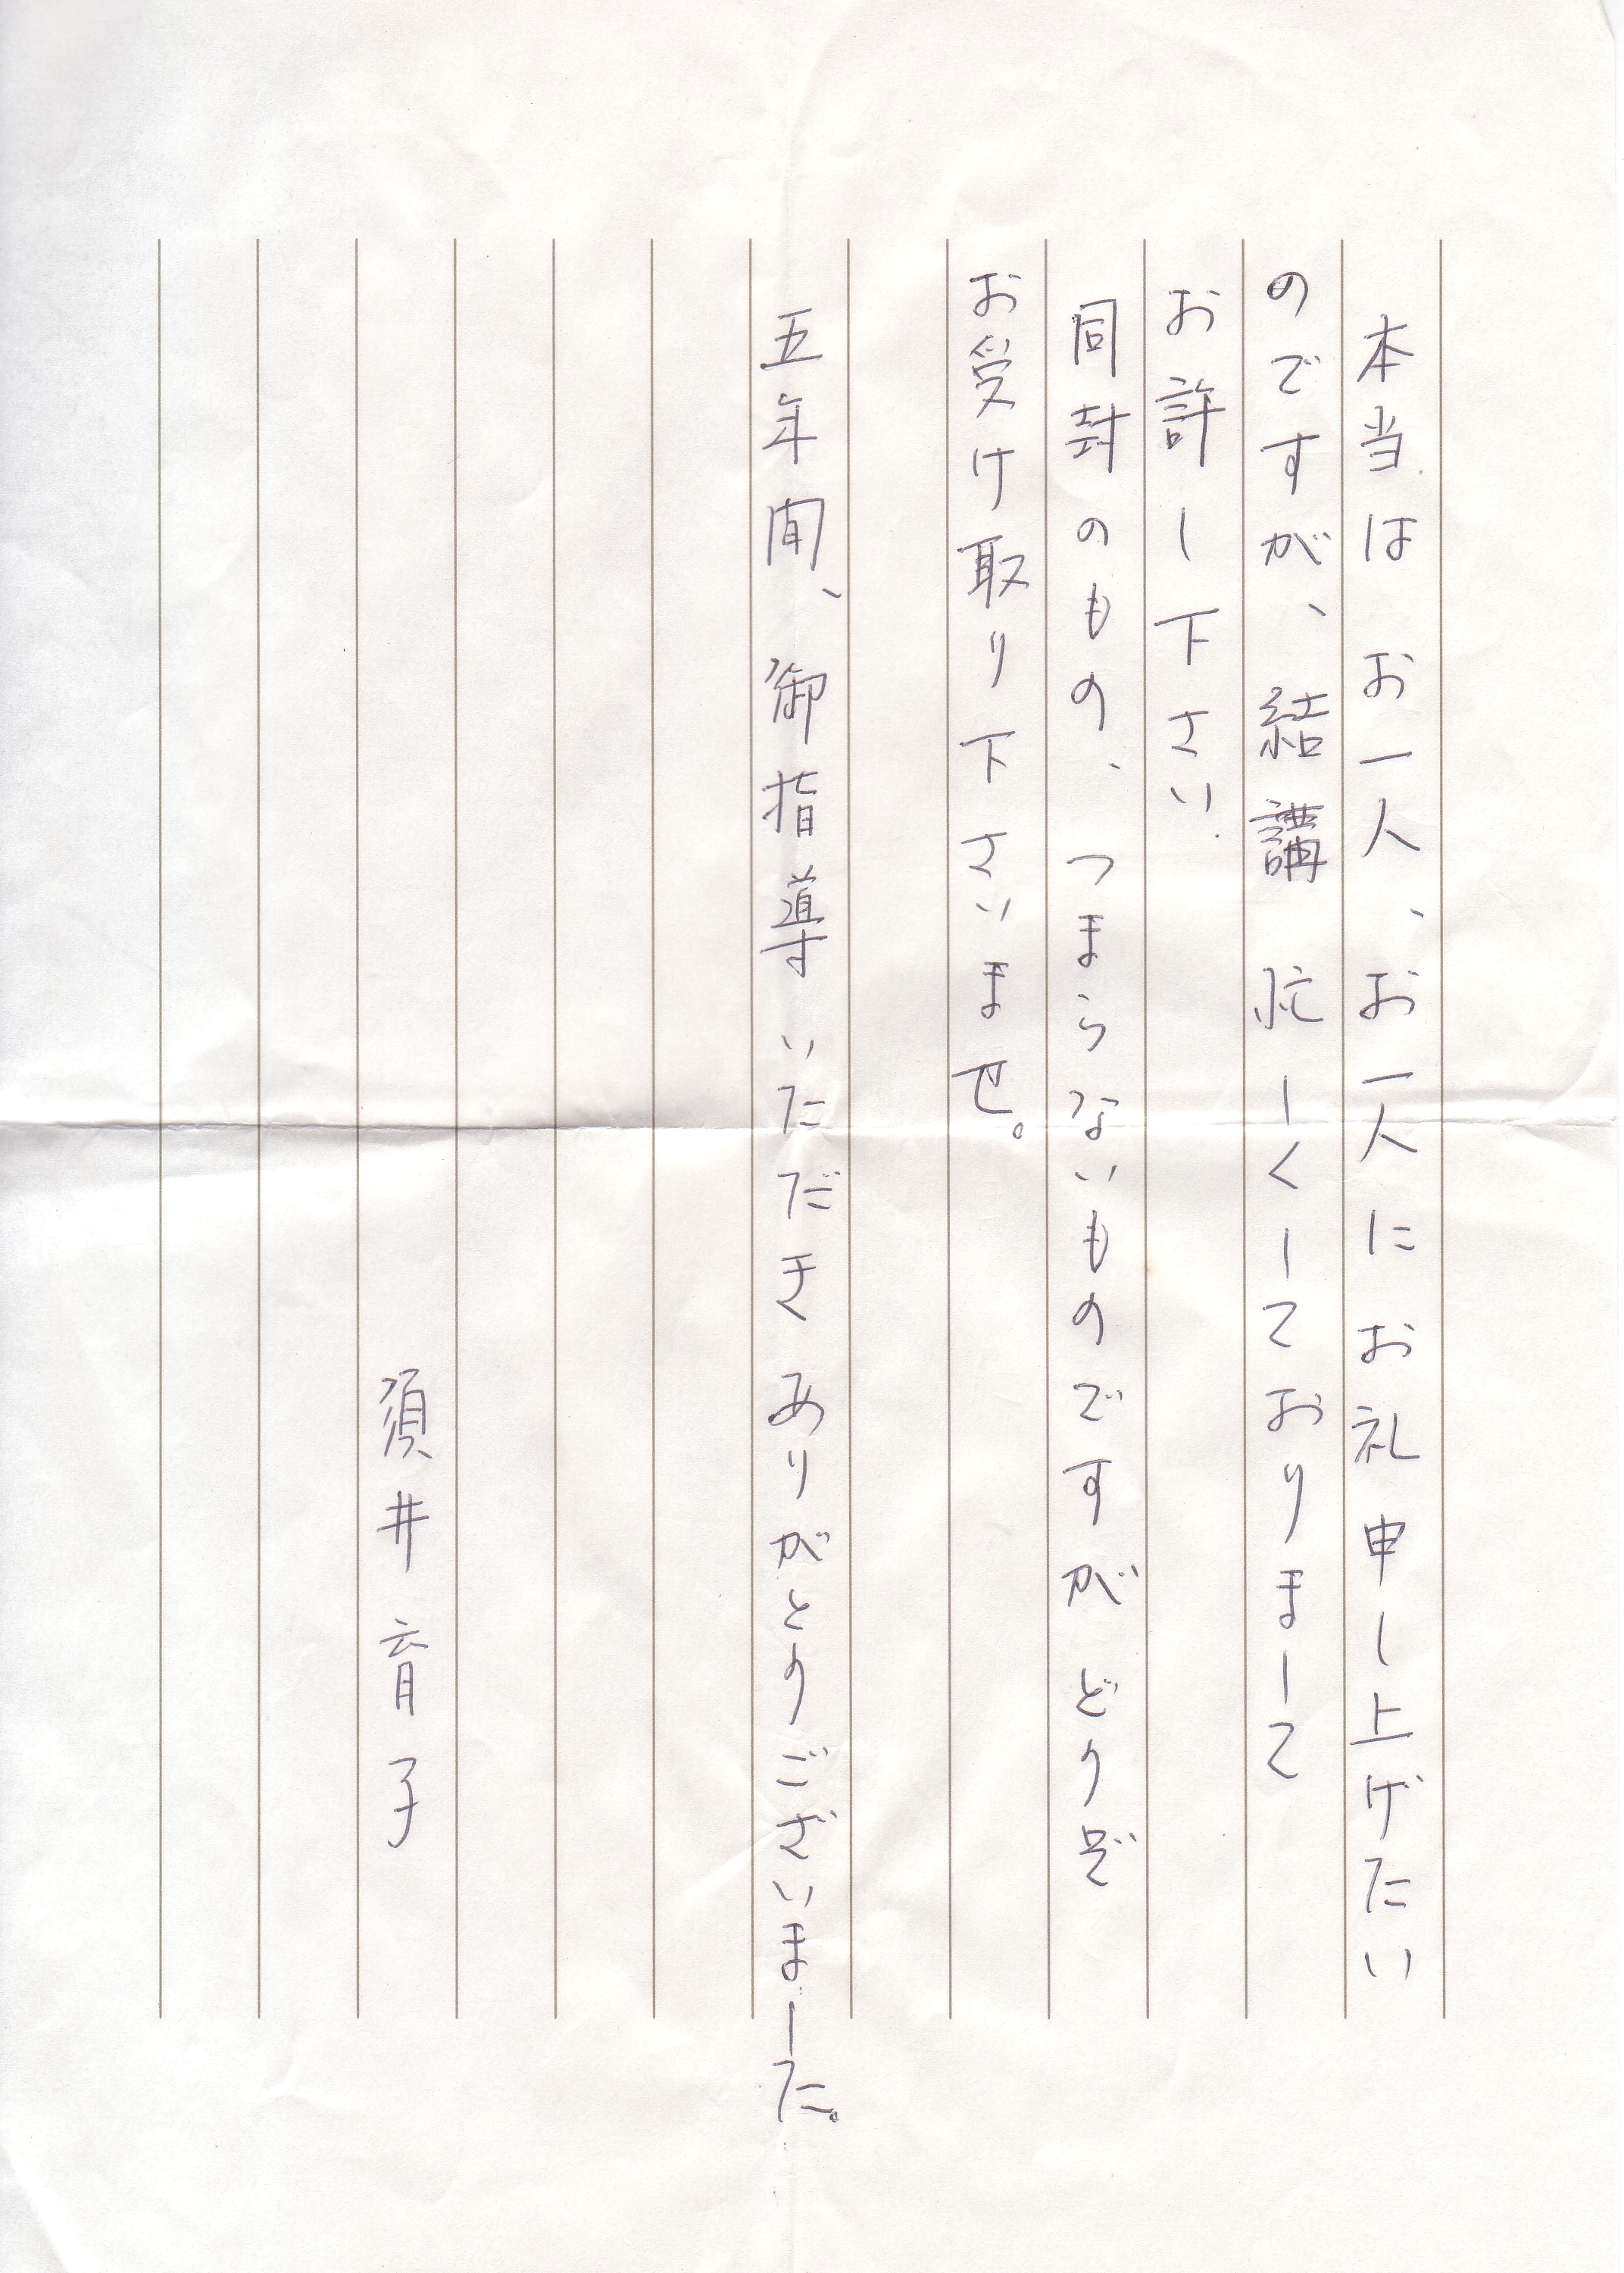 本当はお一人、お一人にお礼申し上げたい
のですが、結講忙しくしておりまして
お許し下さい.
同封のもの、つまらないものですがどうぞ
お受け取り下さいませ。
五年間、御指導いただきありがとうございました。
須井育子